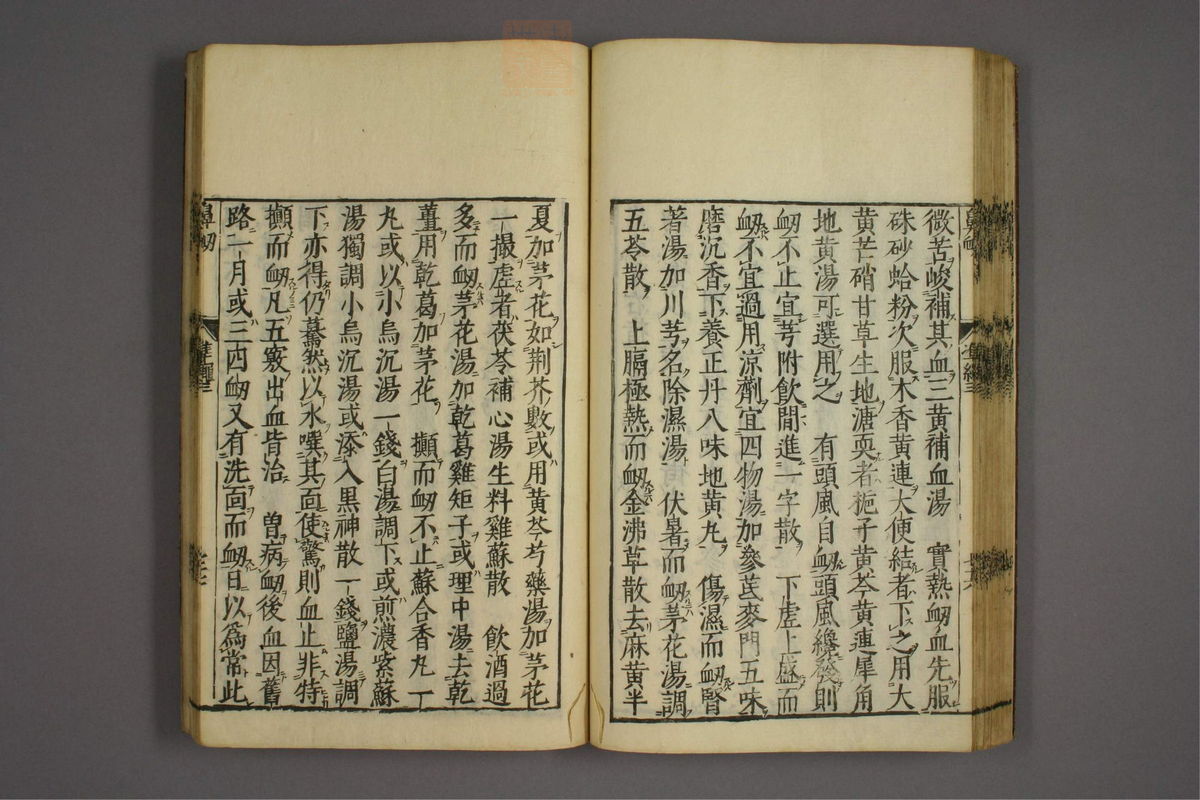 微苦峻補其血三黄補血湯　實熱衂血先服
硃砂蛤粉次服木香黄連大便結者下之用大
黄芒硝甘草生地溏耎者梔子黄芩黄連犀角
地黄湯可選用之　有頭風自衂頭風纔發則
衂不止宜芎附飲間進一字散　下虚上盛而
衂不宜過用涼劑宜四物湯加參芪麥門五味
磨沉香下養正丹八味地黄丸　傷濕而衂腎
著湯加川芎名除濕湯　伏暑而衂茅花湯調
五苓散　上膈極熱而衂金沸草散去麻黄半
夏加茅花如荆芥數或用黄芩芍藥湯加茅花
一撮虚者茯苓補心湯生料雞蘇散　飲酒過
多而衂茅花湯加乾葛雞矩子或理中湯去乾
薑用乾葛加茅花　攧而衂不止蘇合香丸一
丸或以小烏沉湯一錢白湯調下或煎濃紫蘇
湯獨調小烏沉湯或添入黒神散一錢鹽湯調
下亦得仍驀然以水噀其面使驚則血止非特
攧而衂凡五竅出血皆治　曽病衂後血因舊
路一月或三四衂又有洗面而衂日以爲常此
鼻衂